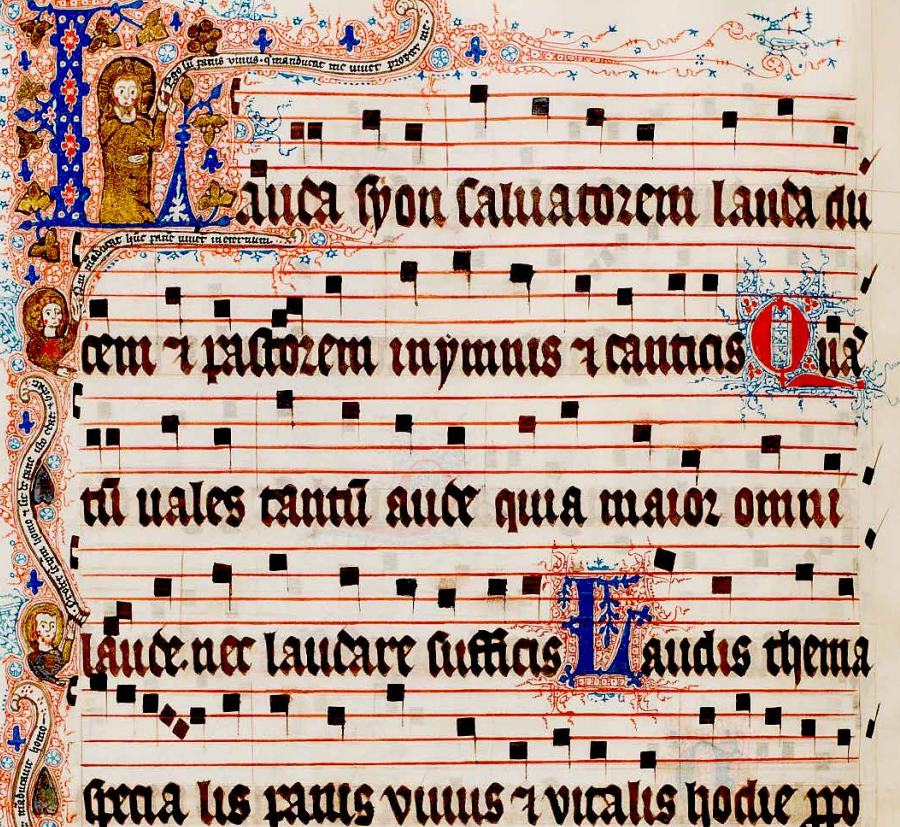 Ego su panis viuus · q manducat me uiuet propter me
Lauda syon saluatorem lauda du
Qui māducat hūc panē uiuet in eternum
cem ⁊ pastorem in ymnis ⁊ canticis Quā
tū uales tantū aude quia maior omni
laude. nec laudare sufficis Laudis thema
specia lis panis viuus ⁊ vitalis hodie ppo